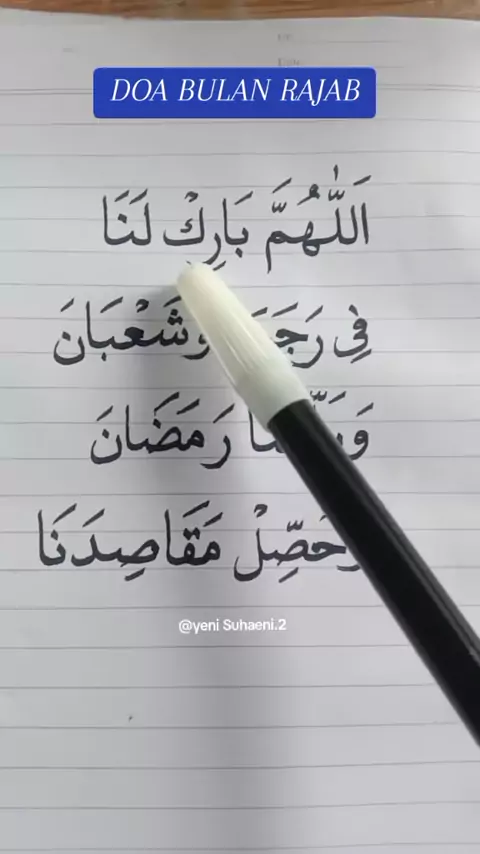 DOA BULAN RAJAB
اَللّٰهُمَّ بَارِكْ لَنَا
فِى وَشَعْبَانَ
رَمَضَانَ
وَحَصِّلْ مَقَاصِدَنَا
@yeni Suhaeni.2